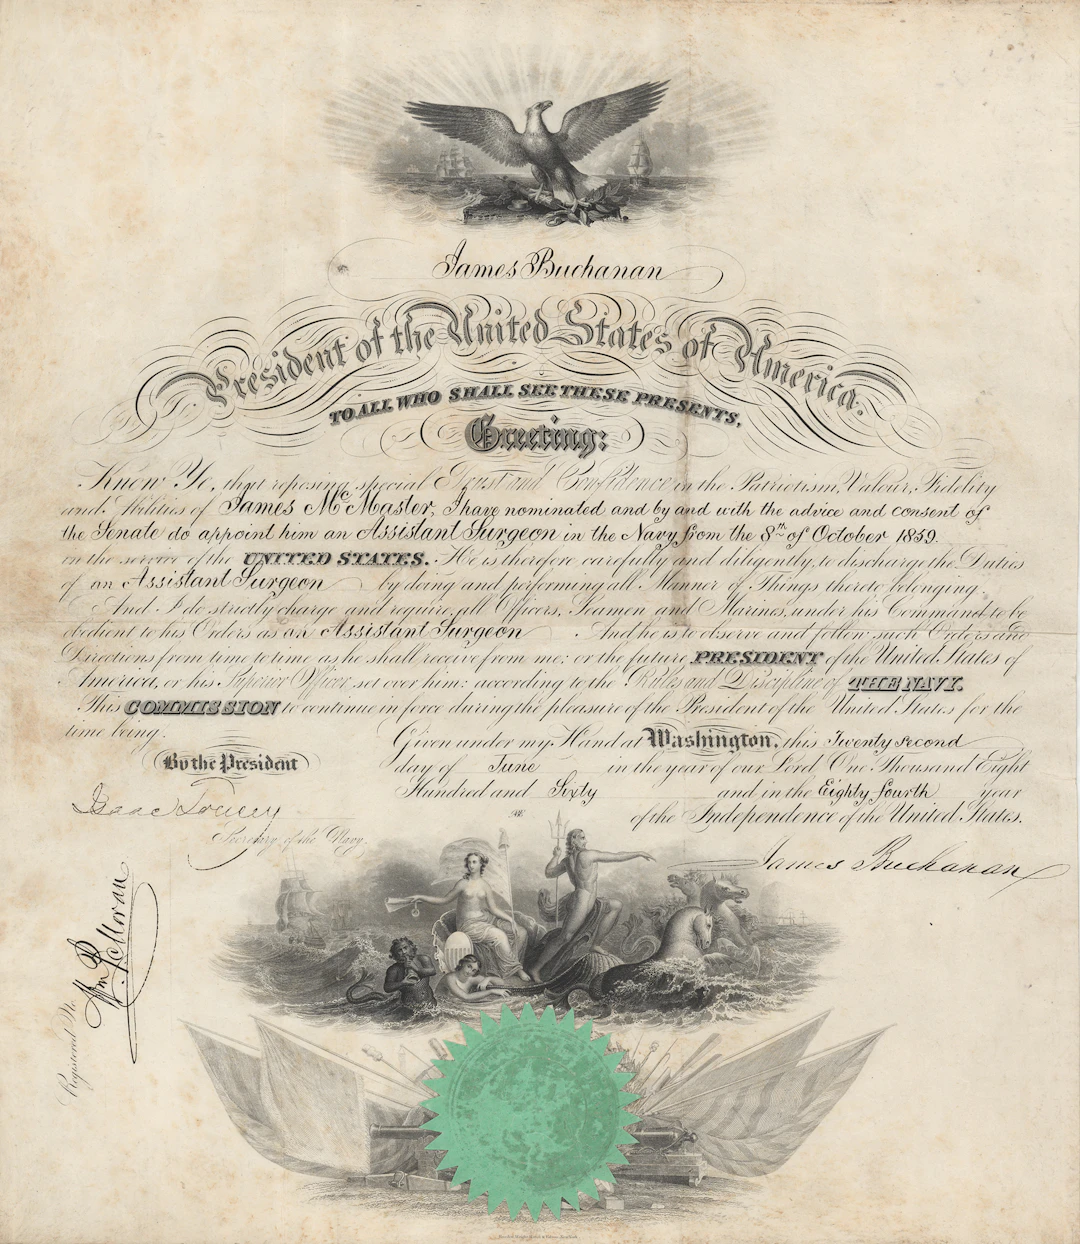 James Buchanan
President of the United States of America.
TO ALL WHO SHALL SEE THESE PRESENTS,
Greeting:
Know Ye, that reposing special Trust and Confidence in the Patriotism, Valour, Fidelity
and Abilities of James Mc Master, I have nominated and by and with the advice and consent of
the Senate do appoint him an Assistant Surgeon in the Navy from the 8th of October 1859.
in the service of the UNITED STATES. He is therefore carefully and diligently, to discharge the Duties
of an Assistant Surgeon by doing and performing all Manner of Things thereto belonging.
And I do strictly charge and require all Officers, Seamen and Marines, under his Command to be
obedient to his Orders as an Assistant Surgeon . And he is to observe and follow such Orders and
Directions from time to time as he shall receive from me; or the future PRESIDENT of the United States of
America, or his Superior Officer set over him: according to the Rules and Discipline of THE NAVY.
This COMMISSION to continue in force during the pleasure of the President of the United States for the
time being.
Given under my Hand at Washington, this Twenty second
day of June in the year of our Lord One Thousand Eight
Hundred and Sixty and in the Eighty fourth year
of the Independence of the United States.
By the President
Isaac Toucey
Secretary of the Navy.
James Buchanan
Registered No
Wm P. S. Moran